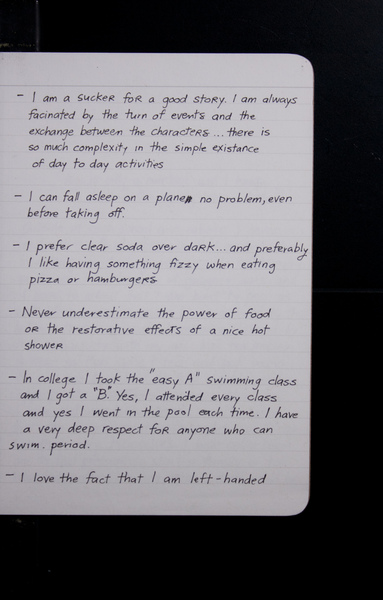 - I am a sucker for a good story. I am always
facinated by the turn of events and the
exchange between the characters ... there is
so much complexity in the simple existance
of day to day activities
- I can fall asleep on a plane no problem, even
before taking off.
- I prefer clear soda over dark... and preferably
I like having something fizzy when eating
pizza or hamburgers
- Never underestimate the power of food
or the restorative effects of a nice hot
shower
- In college I took the "easy A" swimming class
and I got a "B." Yes, I attended every class
and yes I went in the pool each time. I have
a very deep respect for anyone who can
swim. period.
- I love the fact that I am left-handed